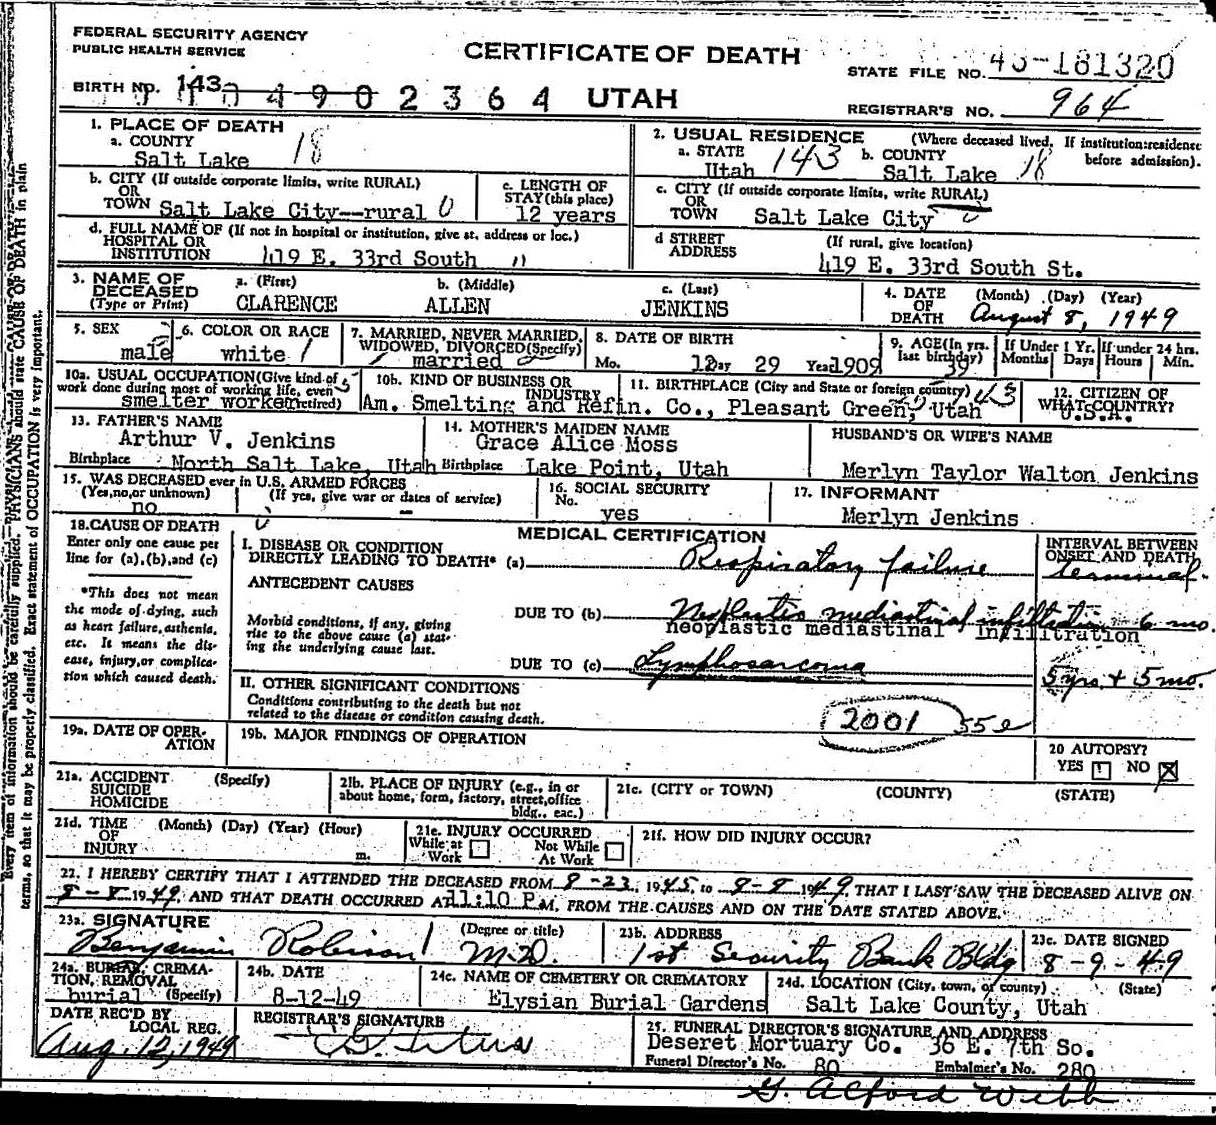 FEDERAL SECURITY AGENCY
PUBLIC HEALTH SERVICE
CERTIFICATE OF DEATH
STATE FILE NO. 181320
BIRTH NO. 143
4 9 0 2 3 6 4 UTAH
REGISTRAR'S NO. 964
1. PLACE OF DEATH
a. COUNTY
Salt Lake 18
2. USUAL RESIDENCE (Where deceased lived. If institution:residence before admission).
a. STATE 143 b. COUNTY 18
Utah Salt Lake
b. CITY (If outside corporate limits, write RURAL)
OR
TOWN Salt Lake City--rural 0
c. LENGTH OF
STAY(this place)
12 years
c. CITY (If outside corporate limits, write RURAL)
OR
TOWN Salt Lake City
d. FULL NAME OF (If not in hospital or institution, give st. address or loc.)
HOSPITAL OR
INSTITUTION 419 E. 33rd South "
d STREET (If rural, give location)
ADDRESS
419 E. 33rd South St.
3. NAME OF DECEASED (Type or Print)
a. (First) b. (Middle) c. (Last)
CLARENCE ALLEN JENKINS
4. DATE OF DEATH (Month) (Day) (Year)
August 8, 1949
5. SEX
male
6. COLOR OR RACE
white 1
7. MARRIED, NEVER MARRIED,
WIDOWED, DIVORCED(Specify)
married
8. DATE OF BIRTH
Mo. 12 Day 29 Year 1909
9. AGE(In yrs. last birthday)
39
If Under 1 Yr. Months Days
If under 24 hrs. Hours Min.
10a. USUAL OCCUPATION(Give kind of
work done during most of working life, even
smelter worker retired)
10b. KIND OF BUSINESS OR
INDUSTRY
Am. Smelting and Refin. Co.,
11. BIRTHPLACE (City and State or foreign country)
Pleasant Green, Utah
12. CITIZEN OF
WHAT COUNTRY?
U.S.A.
13. FATHER'S NAME
Arthur V. Jenkins
Birthplace North Salt Lake, Utah
14. MOTHER'S MAIDEN NAME
Grace Alice Moss
Birthplace Lake Point, Utah
HUSBAND'S OR WIFE'S NAME
Merlyn Taylor Walton Jenkins
15. WAS DECEASED ever in U.S. ARMED FORCES
(Yes,no,or unknown) (If yes, give war or dates of service)
no –
16. SOCIAL SECURITY
No.
yes
17. INFORMANT
Merlyn Jenkins
18.CAUSE OF DEATH
Enter only one cause per
line for (a),(b),and (c)
*This does not mean
the mode of dying, such
as heart failure, asthenia,
etc. It means the dis-
ease, injury, or complica-
tion which caused death.
MEDICAL CERTIFICATION
I. DISEASE OR CONDITION
DIRECTLY LEADING TO DEATH* (a) Respiratory failure
INTERVAL BETWEEN
ONSET AND DEATH
terminal
ANTECEDENT CAUSES
Morbid conditions, if any, giving
rise to the above cause (a) stat-
ing the underlying cause last.
DUE TO (b) Neoplastic mediastinal infiltration 6 mo.
neoplastic mediastinal infiltration
DUE TO (c) Lymphosarcoma 5 yrs. + 5 mo.
II. OTHER SIGNIFICANT CONDITIONS
Conditions contributing to the death but not
related to the disease or condition causing death.
2001 55
19a. DATE OF OPER-
ATION
19b. MAJOR FINDINGS OF OPERATION
20 AUTOPSY?
YES NO X
21a. ACCIDENT (Specify)
SUICIDE
HOMICIDE
21b. PLACE OF INJURY (e.g., in or
about home, form, factory, street,office
bldg., eac.)
21c. (CITY or TOWN) (COUNTY) (STATE)
21d. TIME (Month) (Day) (Year) (Hour)
OF
INJURY m.
21e. INJURY OCCURRED
While at Work Not While At Work
21f. HOW DID INJURY OCCUR?
22. I HEREBY CERTIFY THAT I ATTENDED THE DECEASED FROM 8-23, 1945, to 8-8 1949, THAT I LAST SAW THE DECEASED ALIVE ON
8-8 1949, AND THAT DEATH OCCURRED AT 11:10 P M, FROM THE CAUSES AND ON THE DATE STATED ABOVE.
23a. SIGNATURE (Degree or title)
Benjamin Robison M.D.
23b. ADDRESS
1st Security Bank Bldg
23c. DATE SIGNED
8-9-49
24a. BURIAL, CREMA-
TION, REMOVAL
burial (Specify)
24b. DATE
8-12-49
24c. NAME OF CEMETERY OR CREMATORY
Elysian Burial Gardens
24d. LOCATION (City, town, or county) (State)
Salt Lake County, Utah
DATE REC'D BY
LOCAL REG.
Aug. 12, 1949
REGISTRAR'S SIGNATURE
25. FUNERAL DIRECTOR'S SIGNATURE AND ADDRESS
Deseret Mortuary Co. 36 E. 7th So.
Funeral Director's No. 80 Embalmer's No. 280
G. Alford Webb
Every item of information should be carefully supplied. PHYSICIANS should state CAUSE OF DEATH in plain
terms, so that it may be properly classified. Exact statement of OCCUPATION is very important.